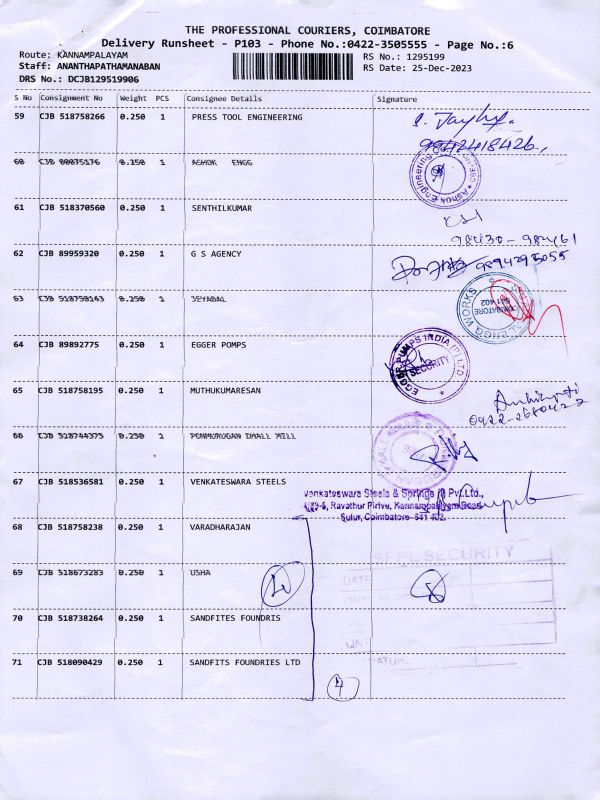 THE PROFESSIONAL COURIERS, COIMBATORE
Delivery Runsheet - P103 - Phone No.:0422-3505555 - Page No.:6
Route: KANNAMPALAYAM
RS No.: 1295199
Staff: ANANTHAPATHAMANABAN
RS Date: 25-Dec-2023
DRS No.: DCJB129519906
S No Consignment No Weight PCS Consignee Details Signature
59 CJB 518758266 0.250 1 PRESS TOOL ENGINEERING
9842418426
60 CJB 80075176 0.250 1 ASHOK ENGG
Ashok Engineering
61 CJB 518370560 0.250 1 SENTHILKUMAR
98430-982461
62 CJB 89959320 0.250 1 G S AGENCY
9894295055
63 CJB 518758143 0.250 1
WORKS
COIMBATORE
641 402
64 CJB 89892775 0.250 1 EGGER POMPS
EGGER PUMPS INDIA (P) LTD
SECURITY
65 CJB 518758195 0.250 1 MUTHUKUMARESAN
66 CJB 518744375 0.250 1 PONMURUGAN SMALL MILL
67 CJB 518536581 0.250 1 VENKATESWARA STEELS
Venkateswara Steels & Springs (I) Pvt.Ltd.,
Ravathur Pirive, Kannampalayam Road
Sulur, Coimbatore-641 402.
68 CJB 518758238 0.250 1 VARADHARAJAN
SECURITY
DATE
69 CJB 518673283 0.250 1 USHA
70 CJB 518738264 0.250 1 SANDFITES FOUNDRIS
QNT
71 CJB 518090429 0.250 1 SANDFITS FOUNDRIES LTD
4